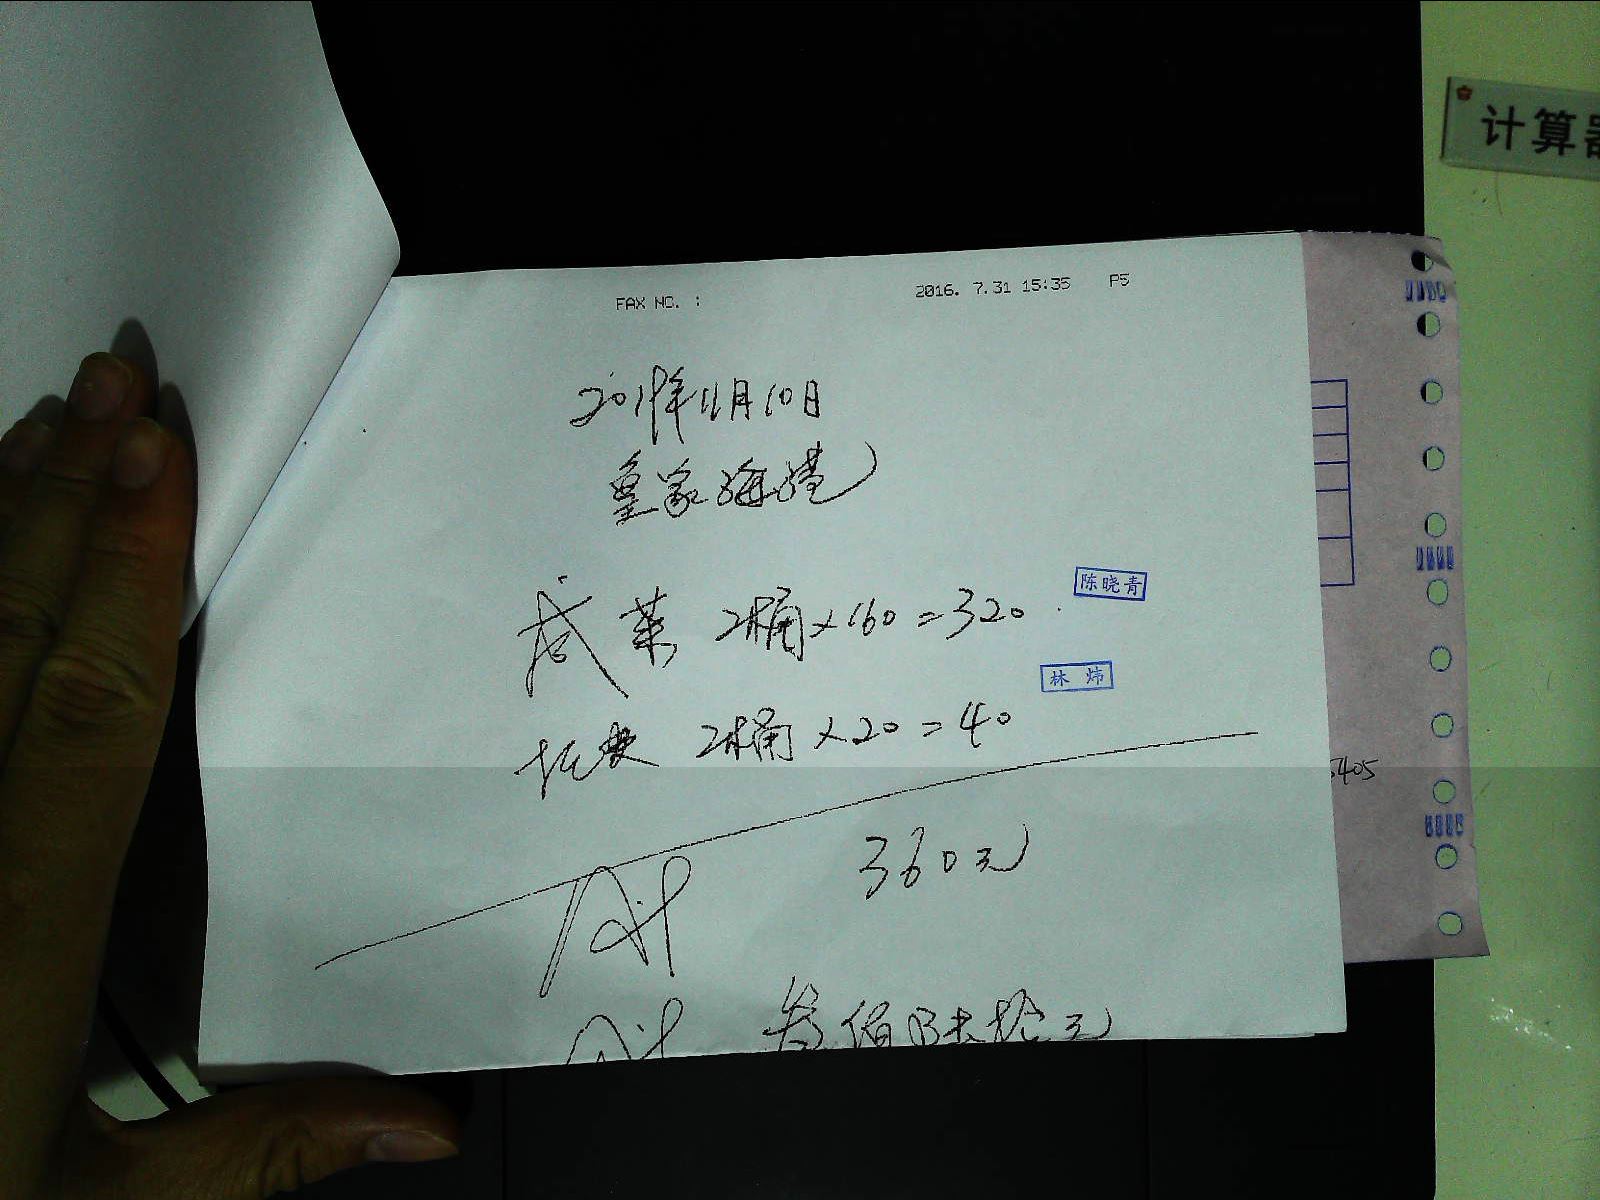 计算器
FAX NO. :
2016. 7.31 15:35 P5
2019年11月10日
皇家海港
咸菜 2桶×160=320
陈晓青
林炜
2桶×20=40
5405
360元
叁佰陆拾元